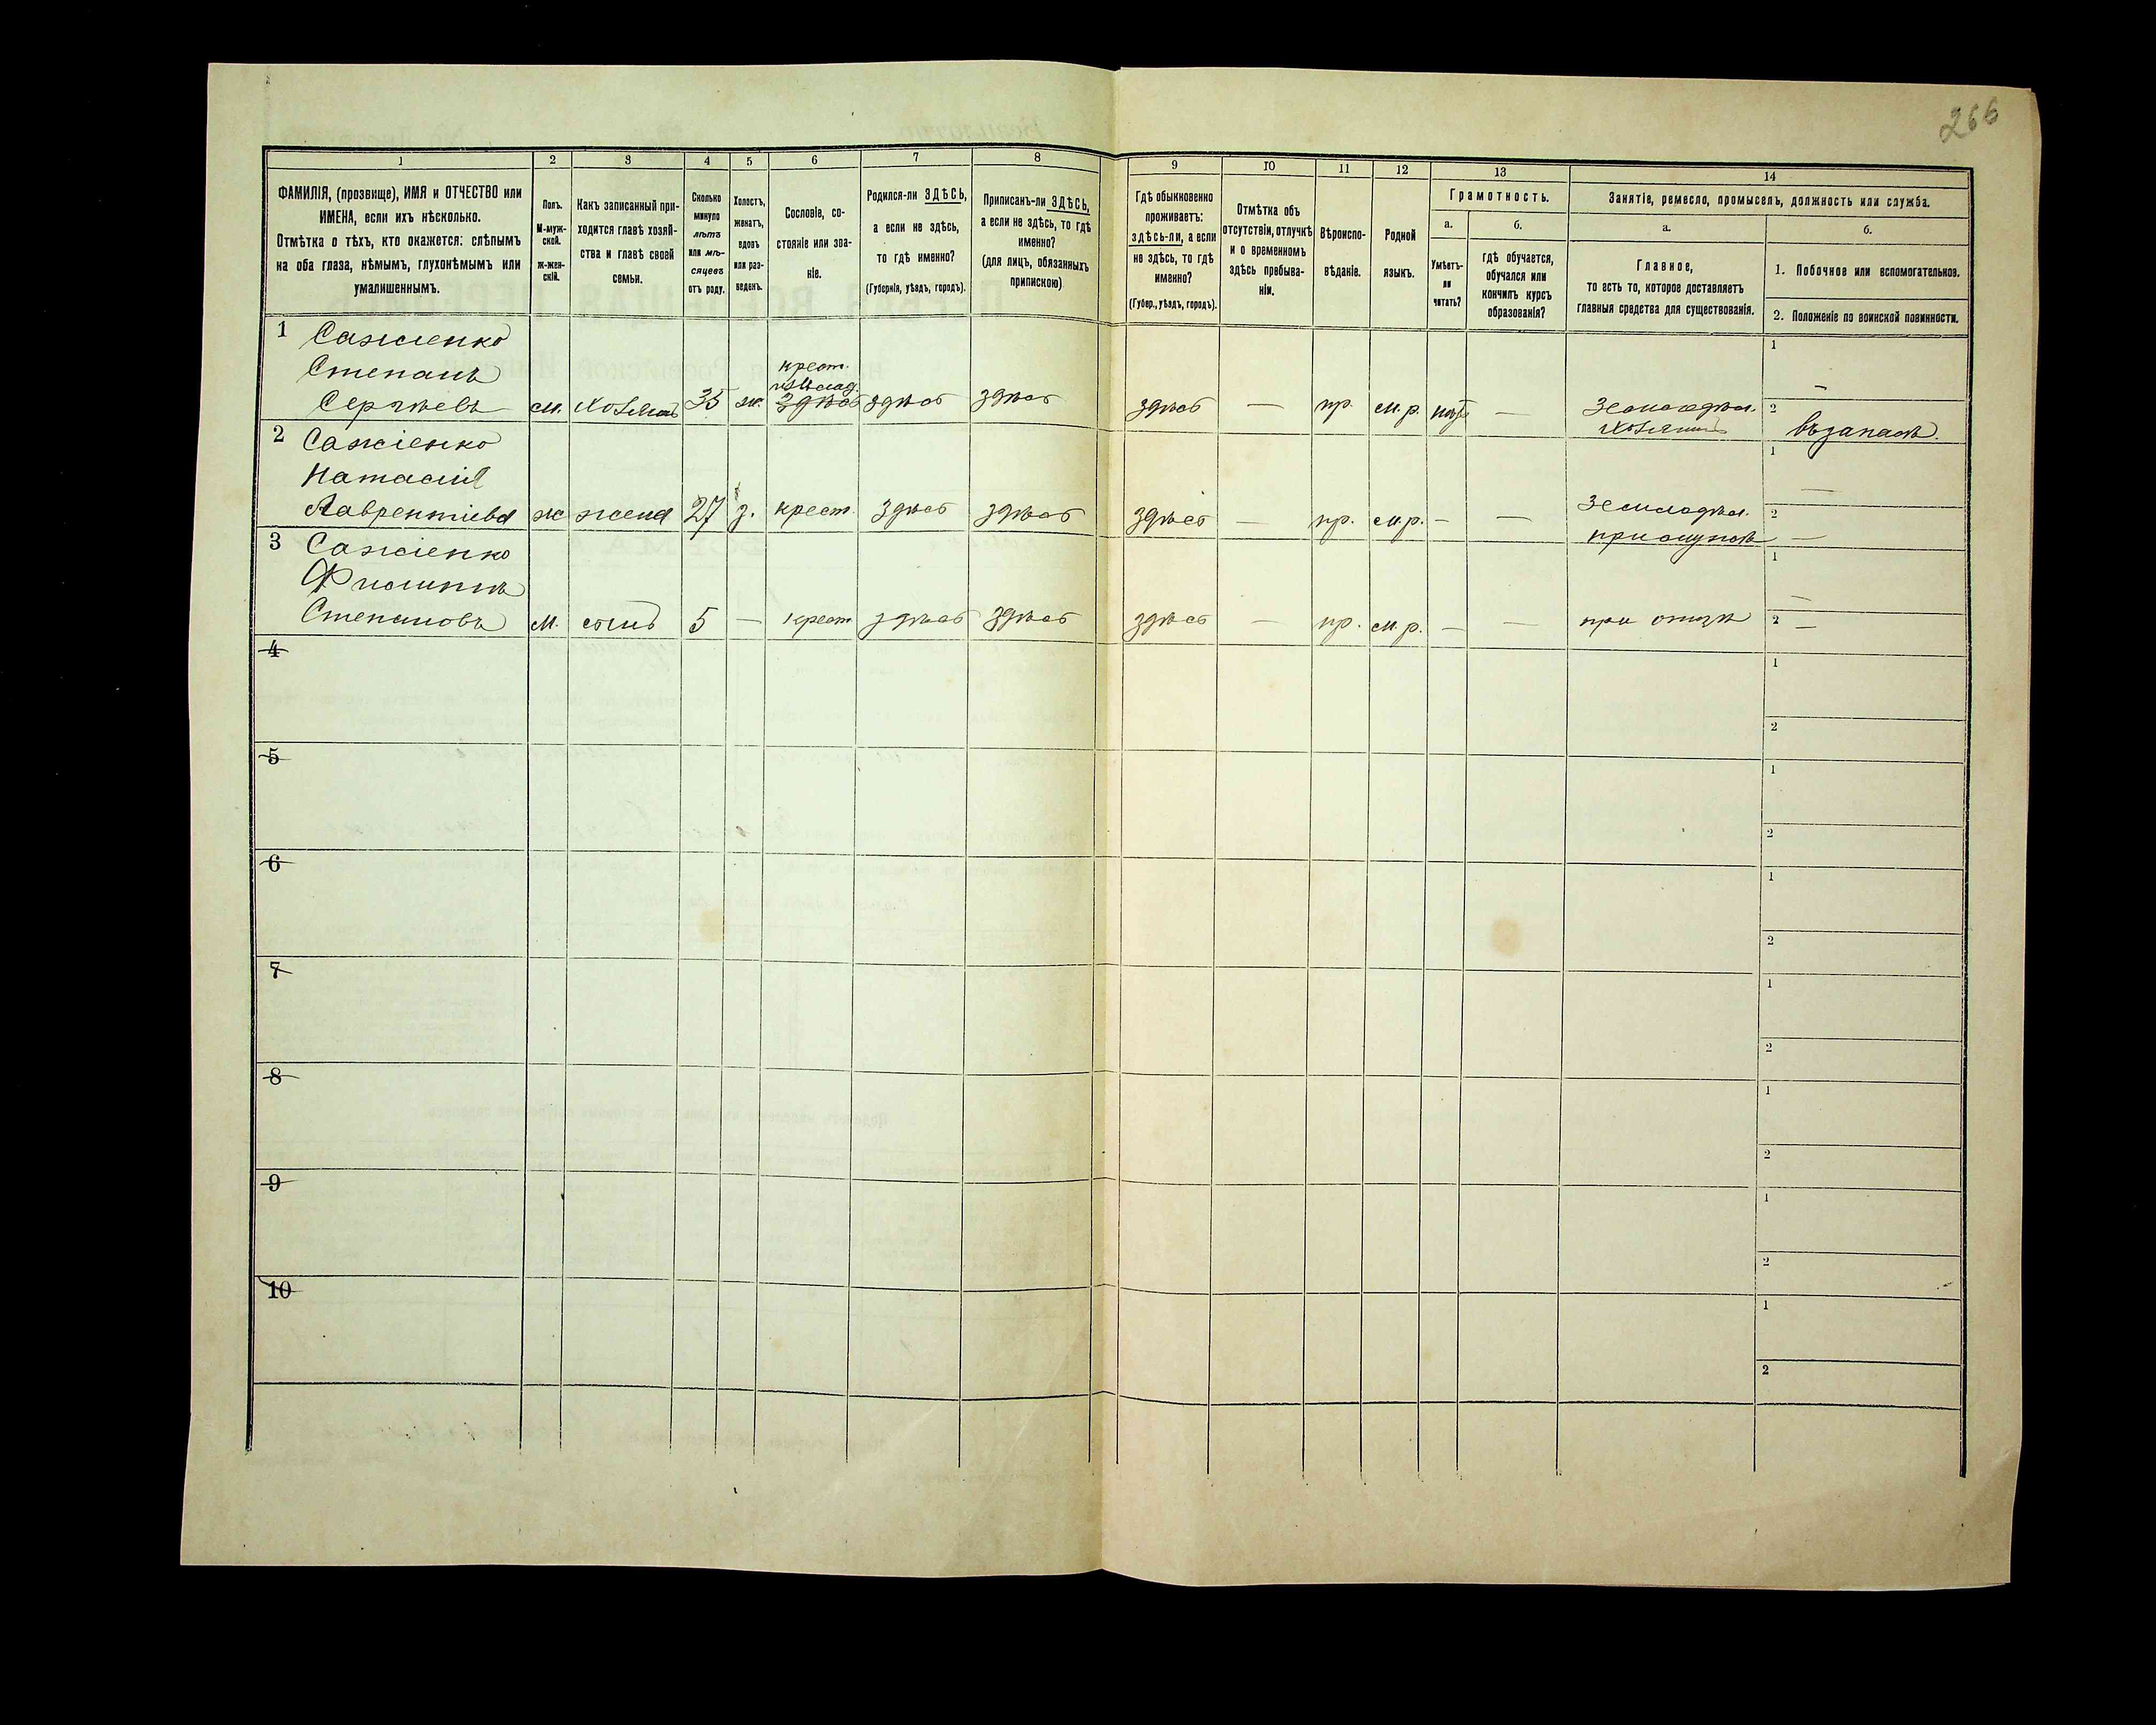 266
1 2 3 4 5 6 7 8 9 10 11 12 13 14
ФАМИЛІЯ, (прозвище), ИМЯ и ОТЧЕСТВО или
ИМЕНА, если ихъ нѣсколько.
Отмѣтка о тѣхъ, кто окажется: слѣпымъ
на оба глаза, нѣмымъ, глухонѣмымъ или
умалишеннымъ.
Полъ.
М-муж-
ской.
ж-жен-
скій.
Какъ записанный при-
ходится главѣ хозяй-
ства и главѣ своей
семьи.
Сколько
минуло
лѣтъ
или мѣ-
сяцевъ
отъ роду.
Холостъ,
женатъ,
вдовъ
или раз-
веденъ.
Сословіе, со-
стояніе или зва-
ніе.
Родился-ли ЗДѢСЬ,
а если не здѣсь,
то гдѣ именно?
(Губернія, уѣздъ, городъ).
Приписанъ-ли ЗДѢСЬ,
а если не здѣсь, то гдѣ
именно?
(для лицъ, обязанныхъ
припискою)
Гдѣ обыкновенно
проживаетъ:
здѣсь-ли, а если
не здѣсь, то гдѣ
именно?
(Губер., уѣздъ, городъ).
Отмѣтка объ
отсутствіи, отлучкѣ
и о временномъ
здѣсь пребыва-
ніи.
Вѣроиспо-
вѣданіе.
Родной
языкъ.
Грамотность.
а.
Умѣетъ-
ли
читать?
б.
гдѣ обучается,
обучался или
кончилъ курсъ
образованія?
Занятіе, ремесло, промыселъ, должность или служба.
а.
Главное,
то есть то, которое доставляетъ
главныя средства для существованія.
б.
1. Побочное или вспомогательное.
2. Положеніе по воинской повинности.
1 Сажіенко
Степанъ
крест.
Сергѣевъ м. Хозяинъ 35 ж. здѣсь здѣсь здѣсь здѣсь — пр. м.р. нѣтъ — Земледѣл.
Хозяинъ
1 —
2 въ запасѣ.
2 Сажіенко
Наталія
Лаврентіева ж жена 27 з. крест. здѣсь здѣсь здѣсь — пр. м.р. — — Земледѣл.
при мужѣ
1 —
2 —
3 Сажіенко
Филиппъ
Степановъ м. сынъ 5 — крест здѣсь здѣсь здѣсь — пр. м.р. — — при отцѣ
1 —
2 —
4
1
2
5
1
2
6
1
2
7
1
2
8
1
2
9
1
2
10
1
2